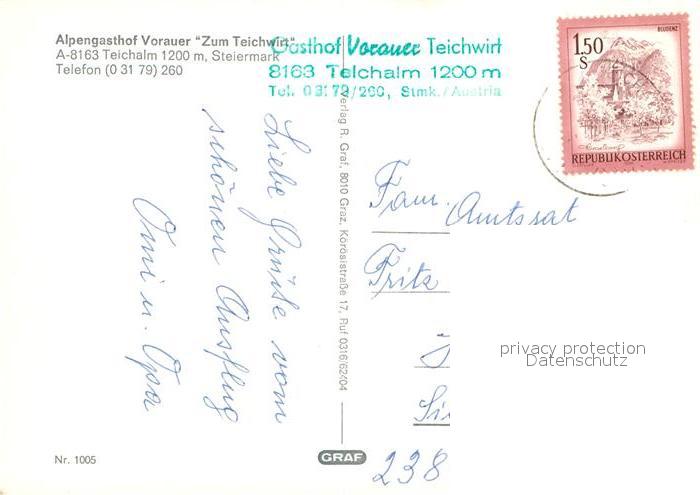 Alpengasthof Vorauer "Zum Teichwirt"
A-8163 Teichalm 1200 m, Steiermark
Telefon (0 31 79) 260
Gasthof Vorauer Teichwirt
8163 Teichalm 1200 m
Tel. 03179/260, Stmk./Austria
BLUDENZ
1.50
S
REPUBLIK ÖSTERREICH
Liebe Grüße vom
schönen Ausflug
Omi u. Opa
Verlag R. Graf, 8010 Graz, Körösistraße 17, Ruf 0316/62404
Fam. Amtsrat
Fritz
privacy protection
Datenschutz
238
Nr. 1005
GRAF